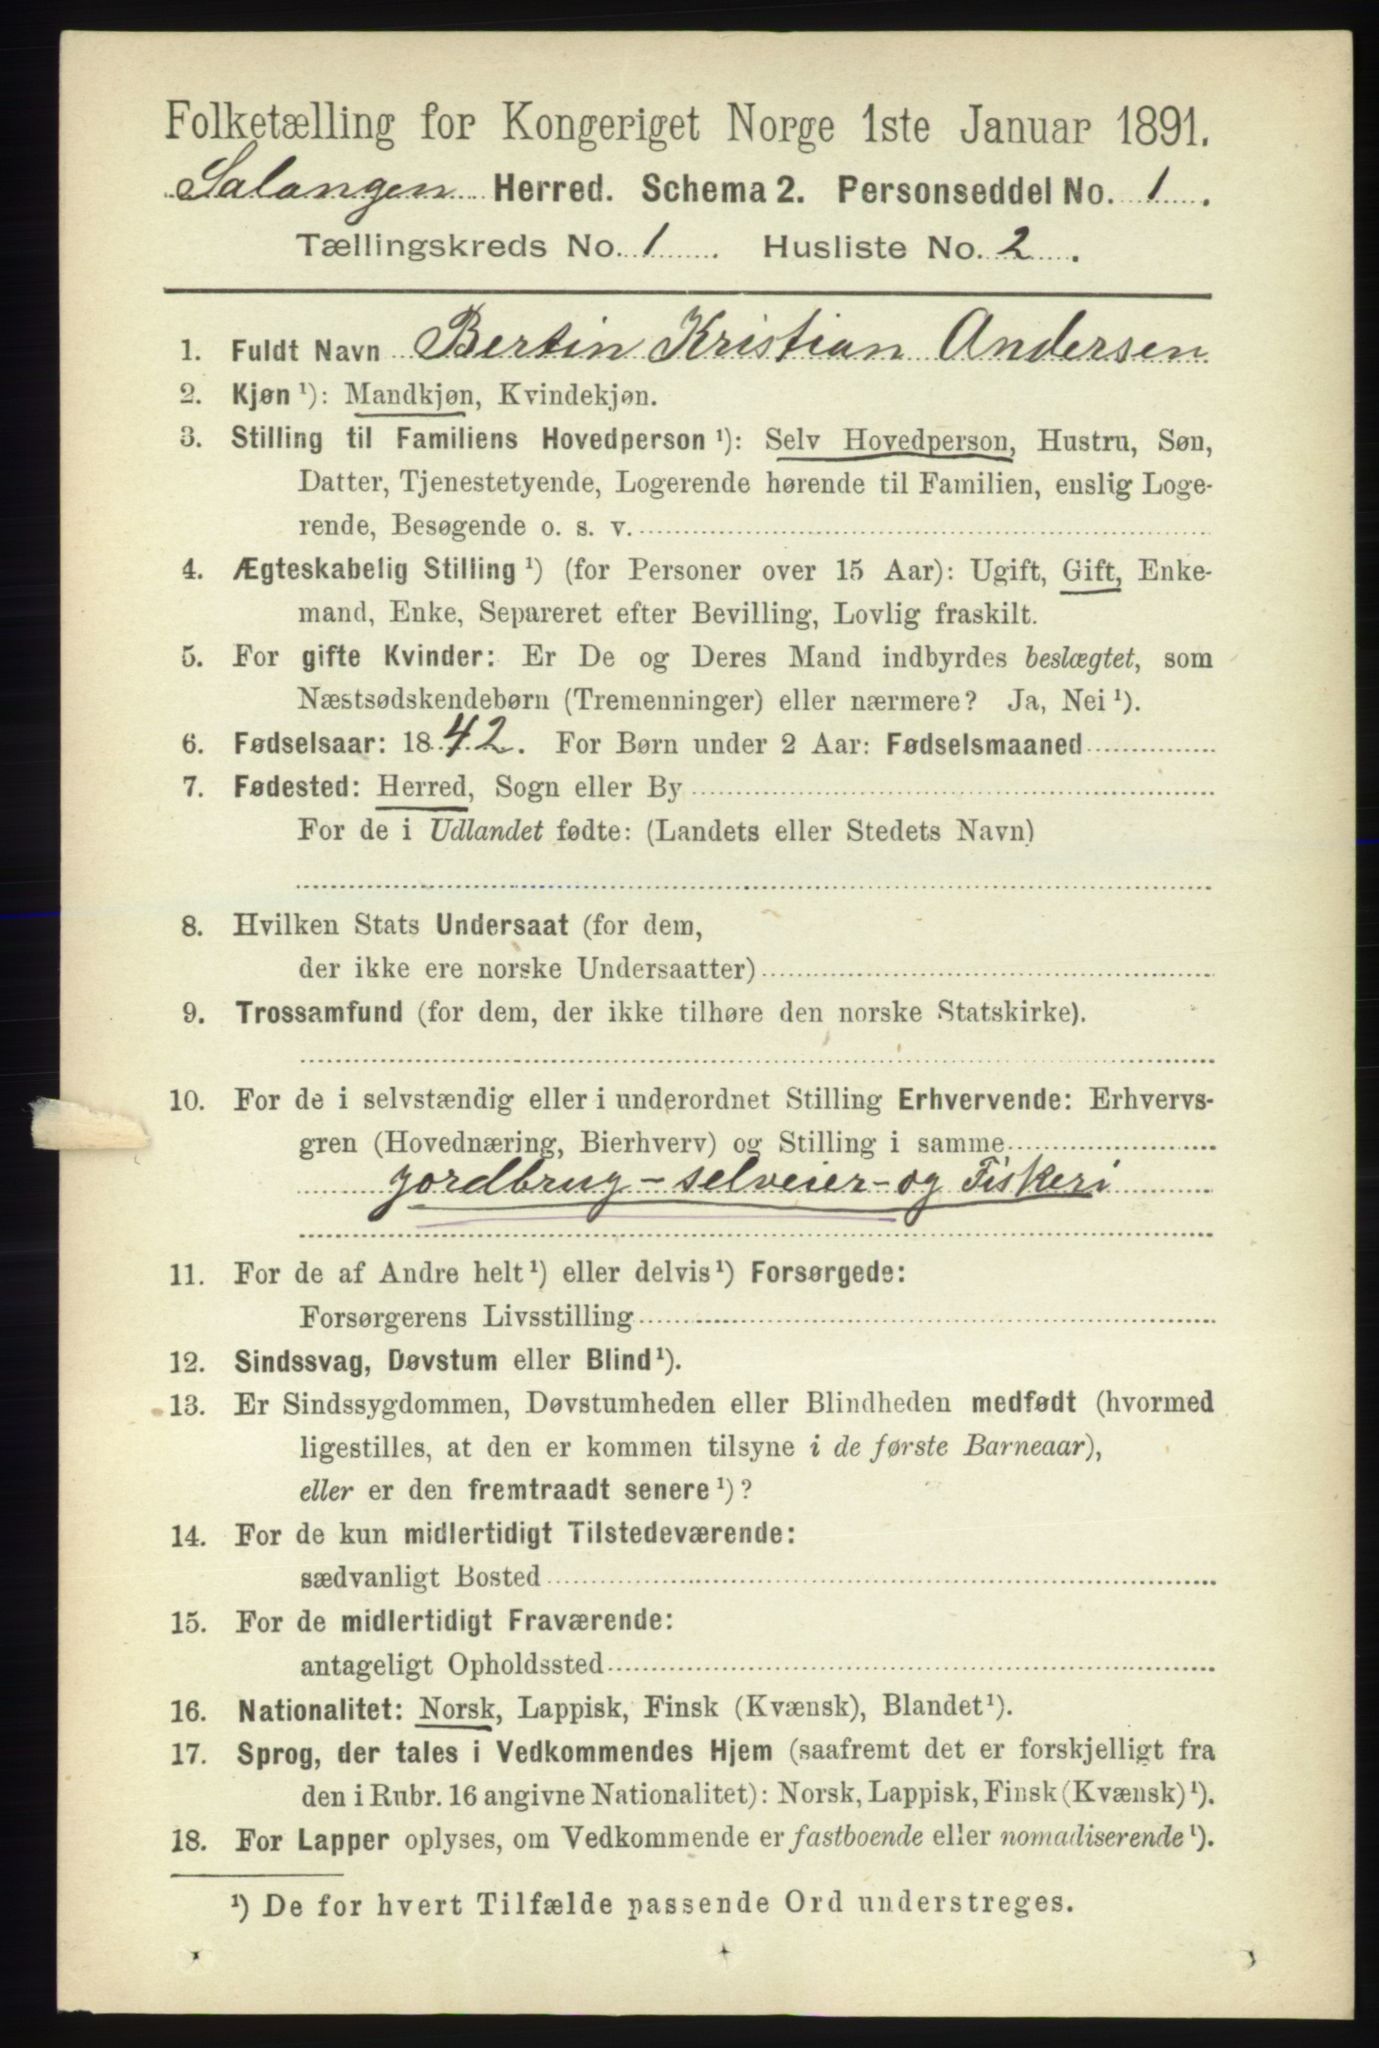 Folketælling for Kongeriget Norge 1ste Januar 1891.
Salangen Herred. Schema 2. Personseddel No. 1.
Tællingskreds No. 1. Husliste No. 2.
1. Fuldt Navn Bertin Kristian Andersen
2. Kjøn ¹): Mandkjøn, Kvindekjøn.
3. Stilling til Familiens Hovedperson ¹): Selv Hovedperson, Hustru, Søn,
Datter, Tjenestetyende, Logerende hørende til Familien, enslig Loge-
rende, Besøgende o. s. v.
4. Ægteskabelig Stilling ¹) (for Personer over 15 Aar): Ugift, Gift, Enke-
mand, Enke, Separeret efter Bevilling, Lovlig fraskilt.
5. For gifte Kvinder: Er De og Deres Mand indbyrdes beslægtet, som
Næstsødskendebørn (Tremenninger) eller nærmere? Ja, Nei ¹).
6. Fødselsaar: 1842. For Børn under 2 Aar: Fødselsmaaned
7. Fødested: Herred, Sogn eller By
For de i Udlandet fødte: (Landets eller Stedets Navn)
8. Hvilken Stats Undersaat (for dem,
der ikke ere norske Undersaatter)
9. Trossamfund (for dem, der ikke tilhøre den norske Statskirke).
10. For de i selvstændig eller i underordnet Stilling Erhvervende: Erhvervs-
gren (Hovednæring, Bierhverv) og Stilling i samme
jordbrug - selveier - og Fiskeri
11. For de af Andre helt ¹) eller delvis ¹) Forsørgede:
Forsørgerens Livsstilling
12. Sindssvag, Døvstum eller Blind ¹).
13. Er Sindssygdommen, Døvstumheden eller Blindheden medfødt (hvormed
ligestilles, at den er kommen tilsyne i de første Barneaar),
eller er den fremtraadt senere ¹)?
14. For de kun midlertidigt Tilstedeværende:
sædvanligt Bosted
15. For de midlertidigt Fraværende:
antageligt Opholdssted
16. Nationalitet: Norsk, Lappisk, Finsk (Kvænsk), Blandet ¹).
17. Sprog, der tales i Vedkommendes Hjem (saafremt det er forskjelligt fra
den i Rubr. 16 angivne Nationalitet): Norsk, Lappisk, Finsk (Kvænsk) ¹).
18. For Lapper oplyses, om Vedkommende er fastboende eller nomadiserende ¹).
¹) De for hvert Tilfælde passende Ord understreges.